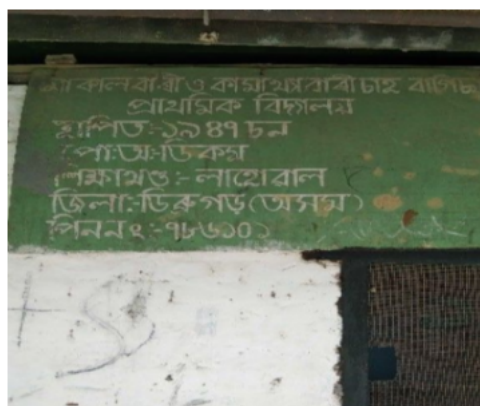 কালবাৰী ও কামাখ্যাবাৰী চাহ বাগিচা
প্ৰাথমিক বিদ্যালয়
স্থাপিত:-১৯৪৭ চন
পো:অ:-ডিকম
শিক্ষাখণ্ড:- লাহোৱাল
জিলা:-ডিব্ৰুগড় (অসম)
পিন নং:-৭৮৬১০১